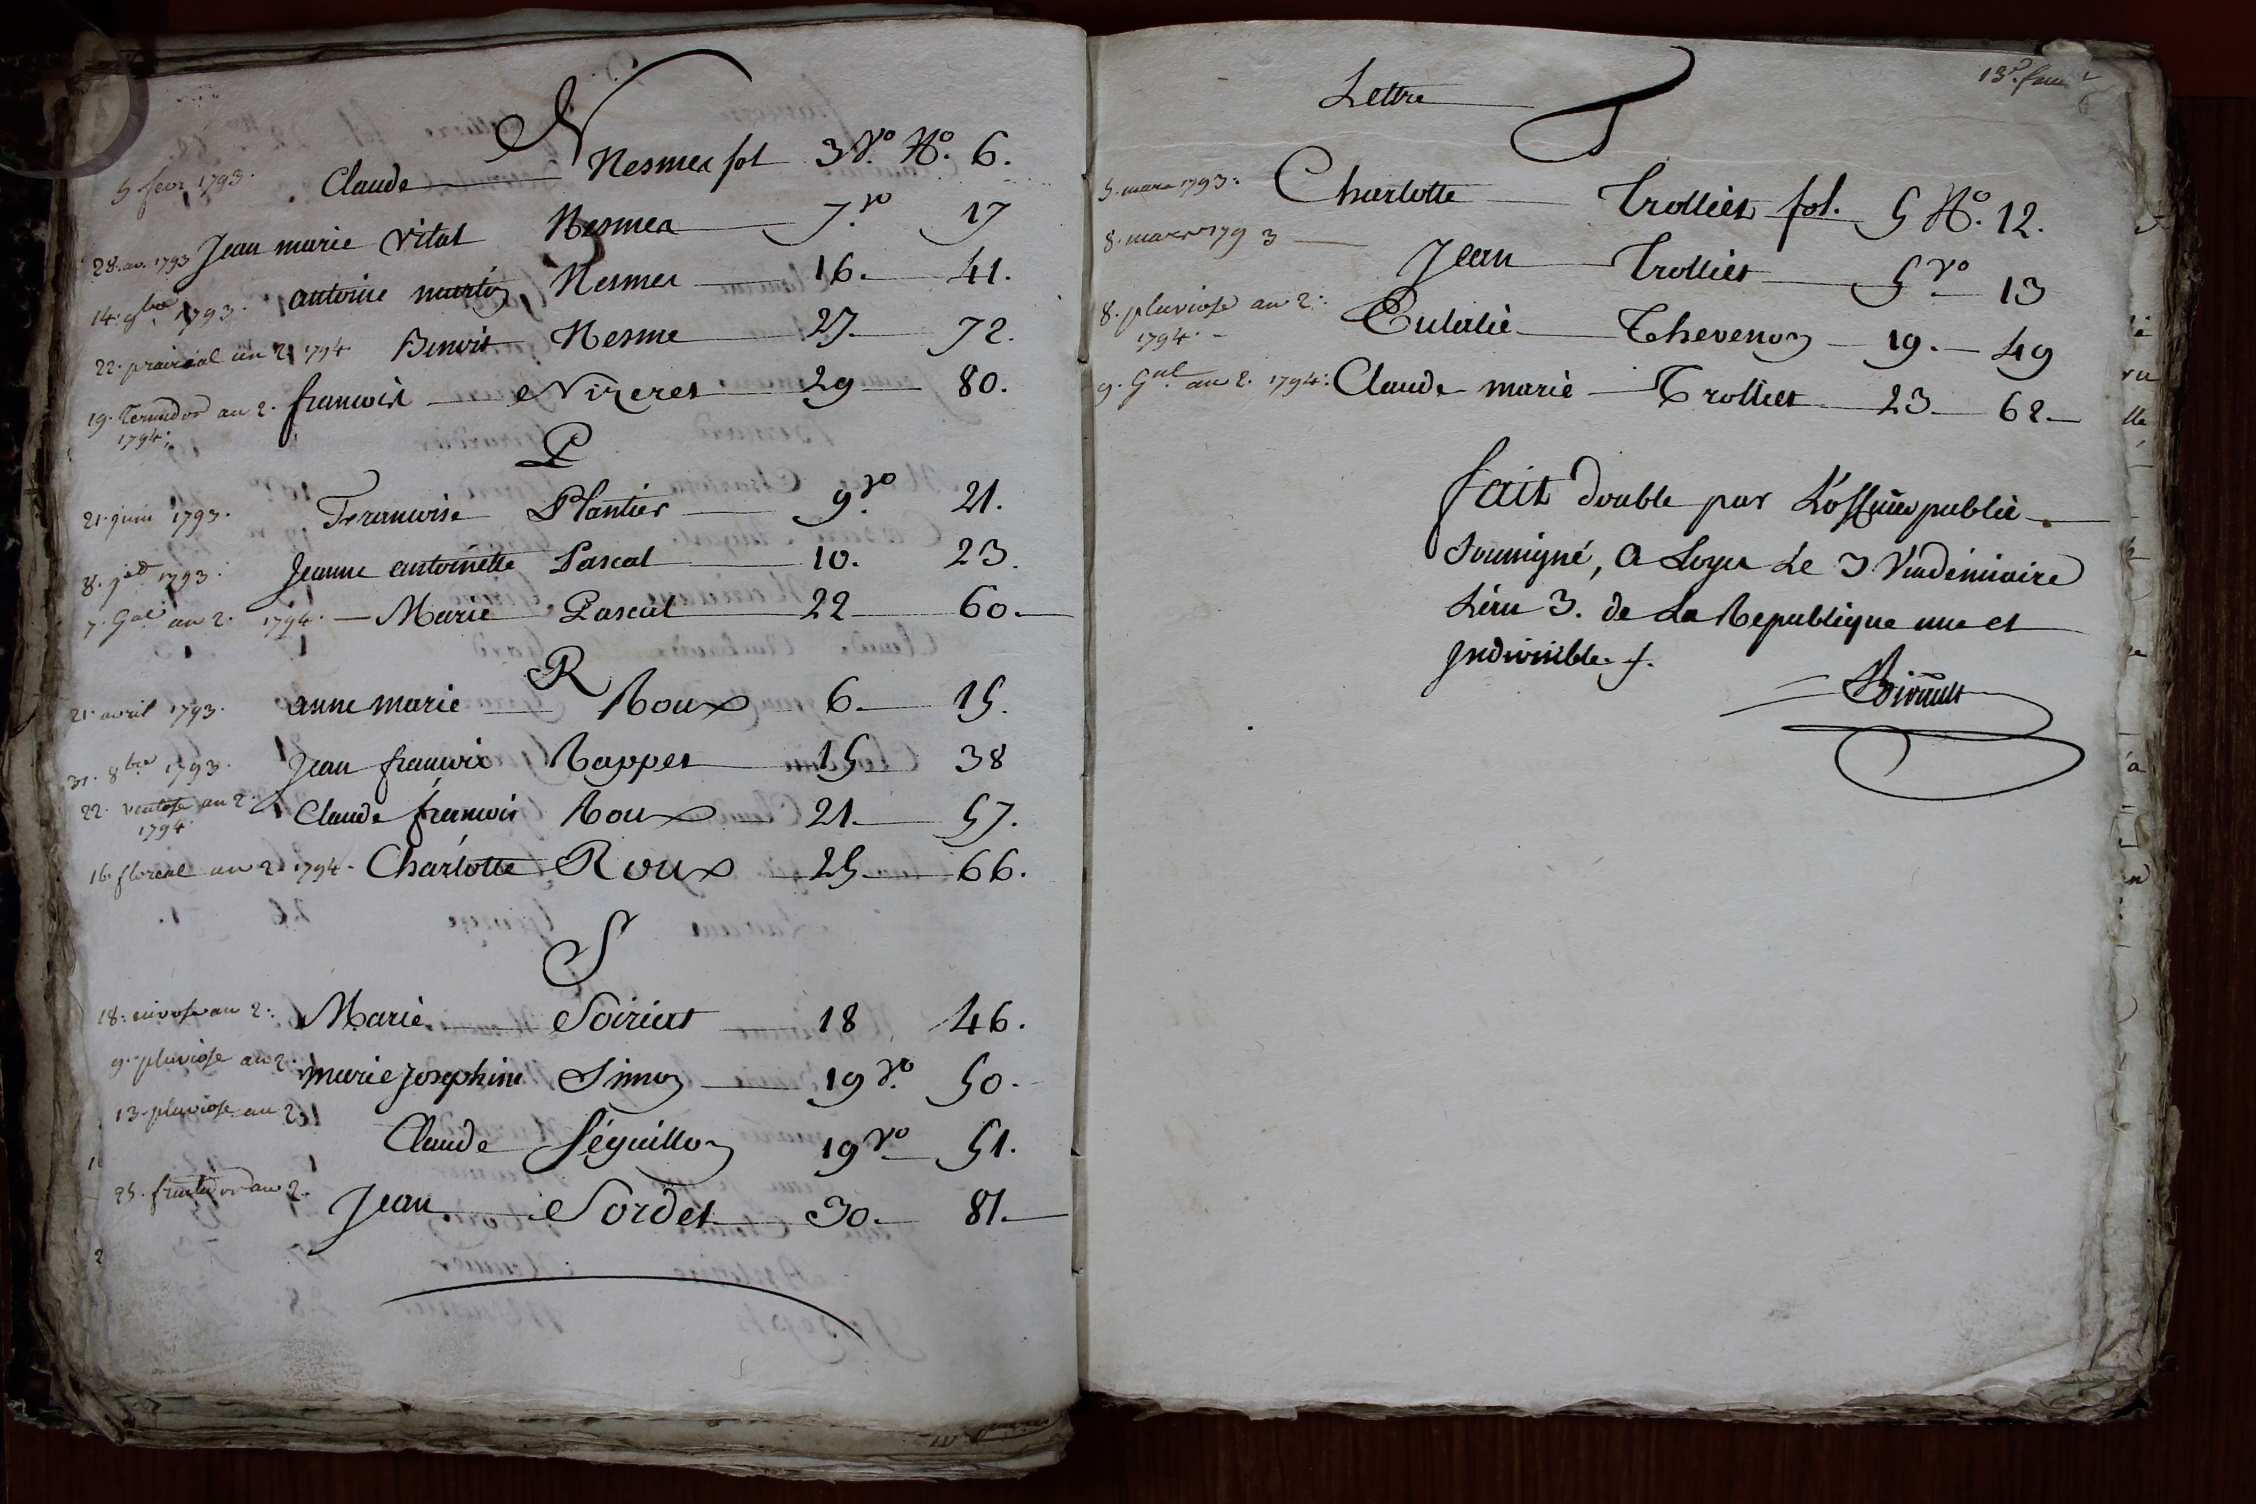 N
5 fevr 1793. Claude Nesmea fol 3 Vo. No. 6.
28. av. 1793 Jean marie vital Nesmea 7. vo 17
14. 9bre 1793. antoine martin Nesmea 16. 41.
22. prairéal an 2. 1794 Benoit Nesme 27. 72.
19. Termidor an 2. francois Nizeret 29 80.
1794.
P
21. juin 1793. Francoise Plantier 9. vo 21.
8. 1793. Jeanne antoinette Pascal 10. 23.
7. Gal an 2. 1794. Marie Pascal 22 60.
R
21. avril 1793. anne marie Roux 6. 15.
31. 8bre 1793. Jean francois Rappet 15 38
22. ventose an 2. Claude francois Roux 21. 57.
1794
16. floreal an 2. 1794. Charlotte Roux 25 66.
S
18. nivose an 2. Marie Soiriat 18 46.
9. pluviose an 2. marie Josephine Simon 19 vo. 50.
13. pluviose an 2.
Claude Séguillon 19 vo 51.
25. fructidor an 2. Jean Sordet 30. 81.
13e.
Lettre T
5. mars 1793. Charlotte Trolliet fol. 5 No. 12.
8. mars 1793 Jean Trolliet 5 vo 13
8. pluviose an 2. Eulalie Thevenon 19. 49
1794.
9. Gal an 2. 1794. Claude marie Trolliet 23 62
fait double par L'officier public
Soussigné, a Loyes Le 3 Vendémiaire
L'an 3. de La Republique une et
Indivisible